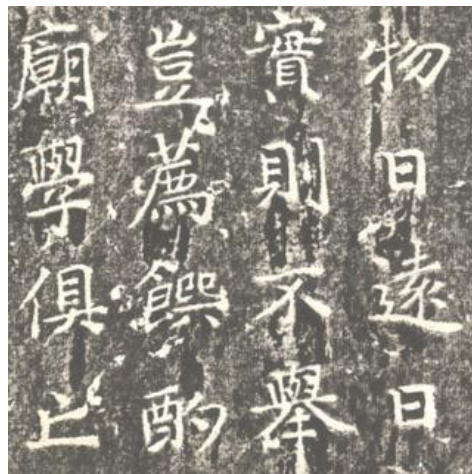 物日遠日
實則不舉
豈薦饌酌
廟學俱亡